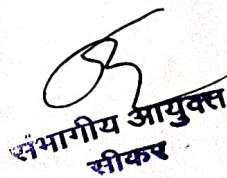 संभागीय आयुक्त
सीकर